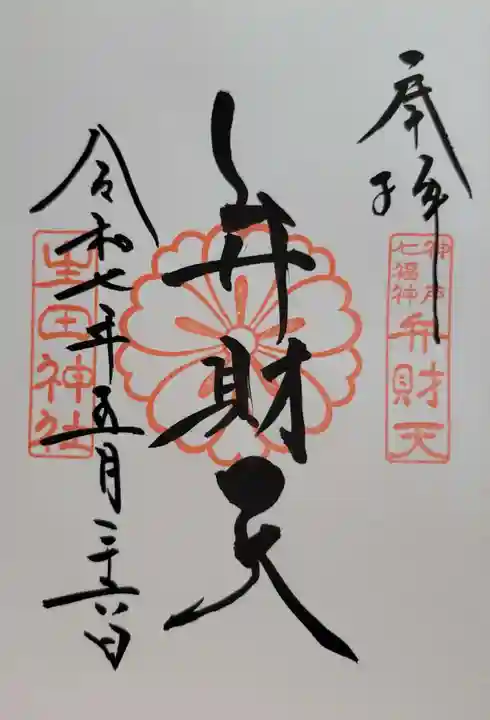 奉拝
神戸
七福神
弁財天
弁財天
生田神社
令和七年五月二十六日